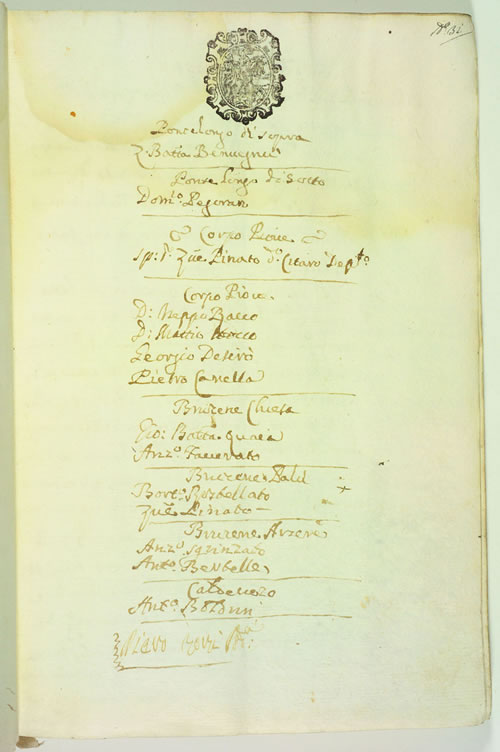 Nº. 131
Pontelongo di sopra
Z. Batta Benuegnù
Ponte longo di Sotto
Domº. Pegoran
Corpo Pioue
sp: Dr. Zuè. Pinato dº. Citaro
Corpo Pioue.
D: Beppo Bacco
D: Mattio
Georgio Desirò
Pietro Canella
Bruzene Chiesa
Gio: Batta. quaia
Anzº. Faccenato
Bruzene Palù
Bort: Rosbellato
Zuè. Pinato
Bruzene Arzere
Anzº. Sguinzato
Antº. Bertelle
Caldeuezo
Antº. Boldrin
Pievo